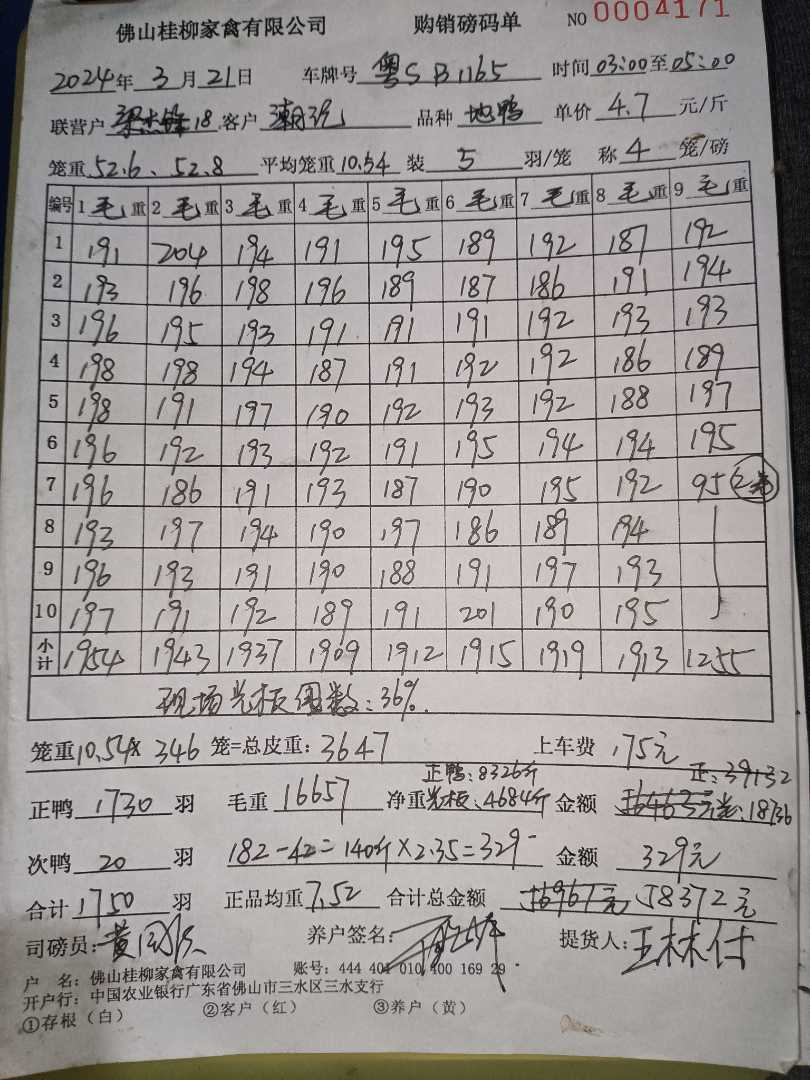 佛山桂柳家禽有限公司 购销磅码单 NO 0004171
2024年3月21日 车牌号 粤S B1165 时间 03:00至05:00
联营户 18 客户 品种 地鸭 单价 4.7 元/斤
笼重 52.6、52.8 平均笼重 10.54 装 5 羽/笼 称 4 笼/磅
编号 1毛重 2毛重 3毛重 4毛重 5毛重 6毛重 7毛重 8毛重 9毛重
1 191 204 194 191 195 189 192 187 192
2 193 196 198 196 189 187 186 191 194
3 196 195 193 191 191 191 192 193 193
4 198 198 194 187 191 192 192 186 189
5 198 191 197 190 192 193 192 188 197
6 196 192 193 192 191 195 194 194 195
7 196 186 191 193 187 190 195 192 95 2笼
8 193 197 194 190 197 186 189 194
9 196 193 191 190 188 191 197 193
10 197 191 192 189 191 201 190 195
小计 1954 1943 1937 1909 1912 1915 1919 1913 1255
现场光板 数:36%.
笼重10.54× 346 笼=总皮重: 3647 上车费 175元
正鸭:8326斤 正:39132
正鸭 1730 羽 毛重 16657 净重 光板:4684斤 金额 光:18736
次鸭 20 羽 182-42=140斤×2.35=329- 金额 329元
合计 1750 羽 正品均重 7.52 合计总金额 58372元
司磅员: 养户签名: 提货人:王林付
户 名:佛山桂柳家禽有限公司 账号:444 401 010 400 169 29
开户行:中国农业银行广东省佛山市三水区三水支行
①存根(白) ②客户(红) ③养户(黄)